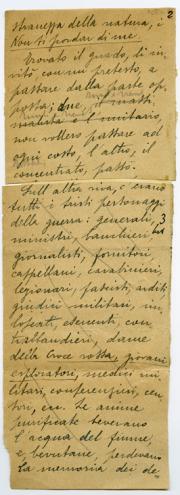 2
stranezza della natura, i
Non ti scordar di me.
Trovato il guado, li in-
vitò con un pretesto, a
passare dalla parte op-
posta; due,
e l'unitario,
non vollero passare ad
ogni costo, l'altro, il
concentrato, passò.
Sull'altra riva, c'erano
tutti i tristi personaggi
della guerra: generali,
ministri, banchieri
giornalisti, fornitori
cappellani, carabinieri,
legionari, fascisti, arditi
giudici militari, im-
boscati, esenti, con
trabbandieri, dame
della Croce rossa, giovani
esploratori, medici mi-
litari, conferenzieri, cen-
sori, ecc. Le anime
purificate bevevano
l'acqua del fiume,
e, bevutane, perdevano
la memoria dei de-